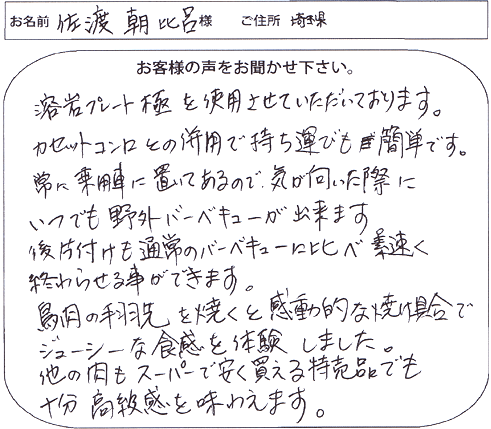 お名前 佐渡 朝比呂 様 ご住所 埼玉県
お客様の声をお聞かせ下さい。
溶岩プレート極を使用させていただいております。
カセットコンロとの併用で持ち運びも簡単です。
常に乗用車に置いてあるので、気が向いた際に
いつでも野外バーベキューが出来ます
後片付けも通常のバーベキューに比べ素速く
終わらせる事ができます。
鳥肉の手羽先を焼くと感動的な焼け具合で
ジューシーな食感を体験しました。
他の肉もスーパーで安く買える特売品でも
十分高級感を味わえます。